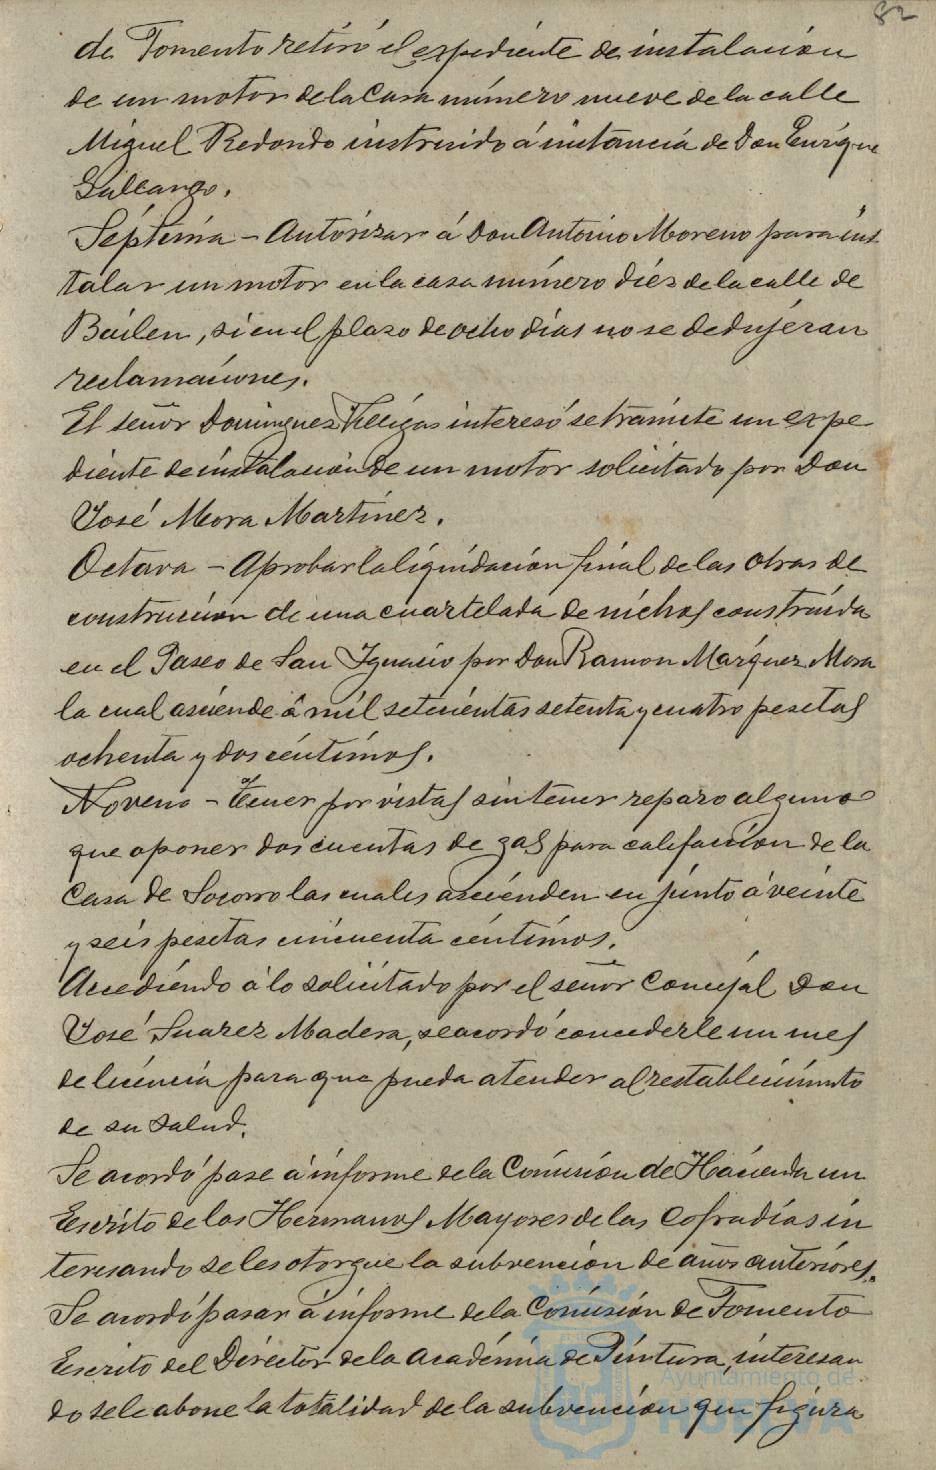 82
de Fomento retiró el expediente de instalacion
de un motor de la Casa número nueve de la calle
Miguel Redondo instruido á instancia de Don Enrique
Séptima - Autorizar á Don Antonio Moreno para ins-
talar un motor en la casa número diez de la calle de
Bailen, si en el plazo de ocho dias no se dedujeran
reclamaciones.
El señor Dominguez Villegas interesó se tramite un expe-
diente de instalacion de un motor solicitado por Don
José Mora Martínez.
Octava - Aprobar la liquidacion final de las obras de
construccion de una cuartelada de nichos construida
en el Paseo de San Ignacio por Don Ramon Marquez Mora
la cual asciende á mil setecientas setenta y cuatro pesetas
ochenta y dos céntimos.
Noveno - Tener por vistas sin tener reparo alguno
que oponer dos cuentas de gas para calefaccion de la
Casa de Socorro las cuales ascienden en junto á veinte
y seis pesetas cincuenta céntimos.
Accediendo á lo solicitado por el señor Concejal Don
José Suarez Madera, se acordó concederle un mes
de licencia para que pueda atender al restablecimiento
de su salud.
Se acordó pase á informe de la Comision de Hacienda un
Escrito de los Hermanos Mayores de las Cofradías in
teresando se les otorgue la subvencion de años anteriores.
Se acordó pasar á informe de la Comision de Fomento
Escrito del Director de la Académia de Pintura, interesan
do se le abone la totalidad de la subvencion que figura
Ayuntamiento de
HUELVA